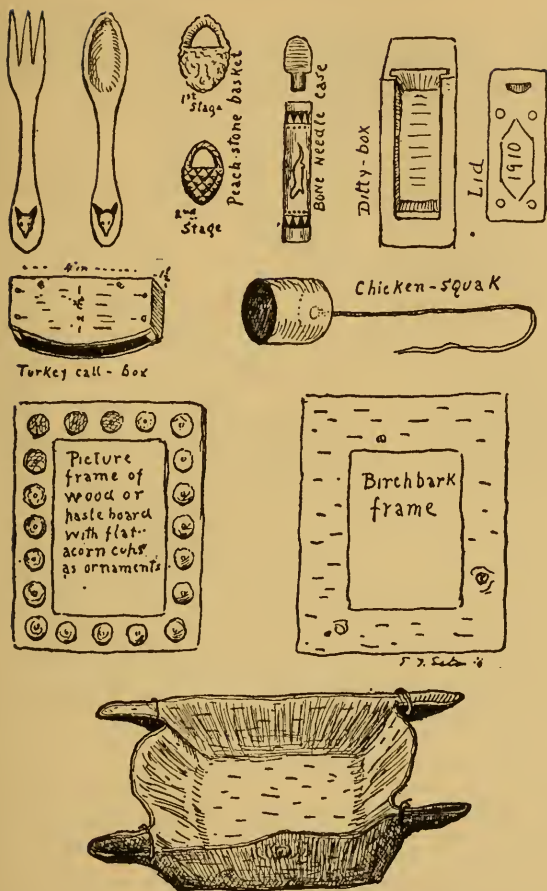 1st
Stage
2nd
Stage
Peach-stone basket
Bone Needle case
Ditty-box
Lid
1910
4 in
Chicken-squak
Turkey call-box
Picture
frame of
wood or
paste board
with flat
acorn cups
as ornaments
Birchbark
frame